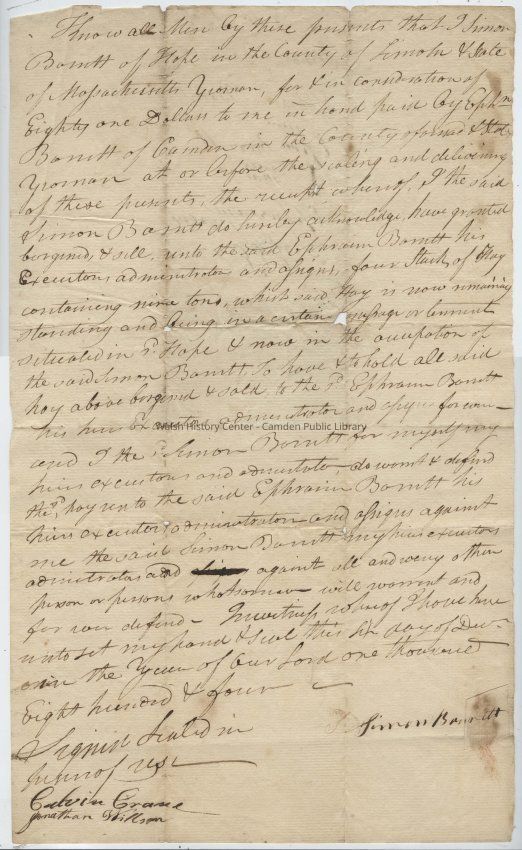 Know all Men by these presents that I Simon
Barrett of Hope in the County of Lincoln & State
of Massachusetts Yeoman, for & in consideration of
Eighty one Dollars to me in hand paid by Ephm
Barrett of Camden in the County aforesaid & State
Yeoman at or before the sealing and delivering
of these presents, the receipt whereof, I the said
Simon Barrett do hereby acknowledge, have granted
bargined & sell, unto the said Ephraim Barrett his
Executors administrators and assigns, four Stacks of Hay
containing nine tons, which said Hay is now remaining
standing and being in a certain messuage or tenement
situated in sd. Hope & now in the occupation of
the said Simon Barrett, To have & to hold all said
hay above bargined & sold, to the sd. Ephraim Barrett
his heirs Executors administrators and assigns forever
Walsh History Center - Camden Public Library
and I the sd. Simon Barrett for myself my
heirs executors and administrators do warrant & defend
the sd. hay unto the said Ephraim Barrett his
heirs executors administrators and assigns against
me the said Simon Barrett my heirs executors
administrators and against all and every other
person or persons whatsoever will warrant and
for ever defend - In witness whereof I have here
unto set my hand & seal this day of
in the Year of Our Lord one thousand
Eight hundred & four
Signed Sealed in
presence of us
Simon Barrett
Calvin Crane
Jonathan Willson